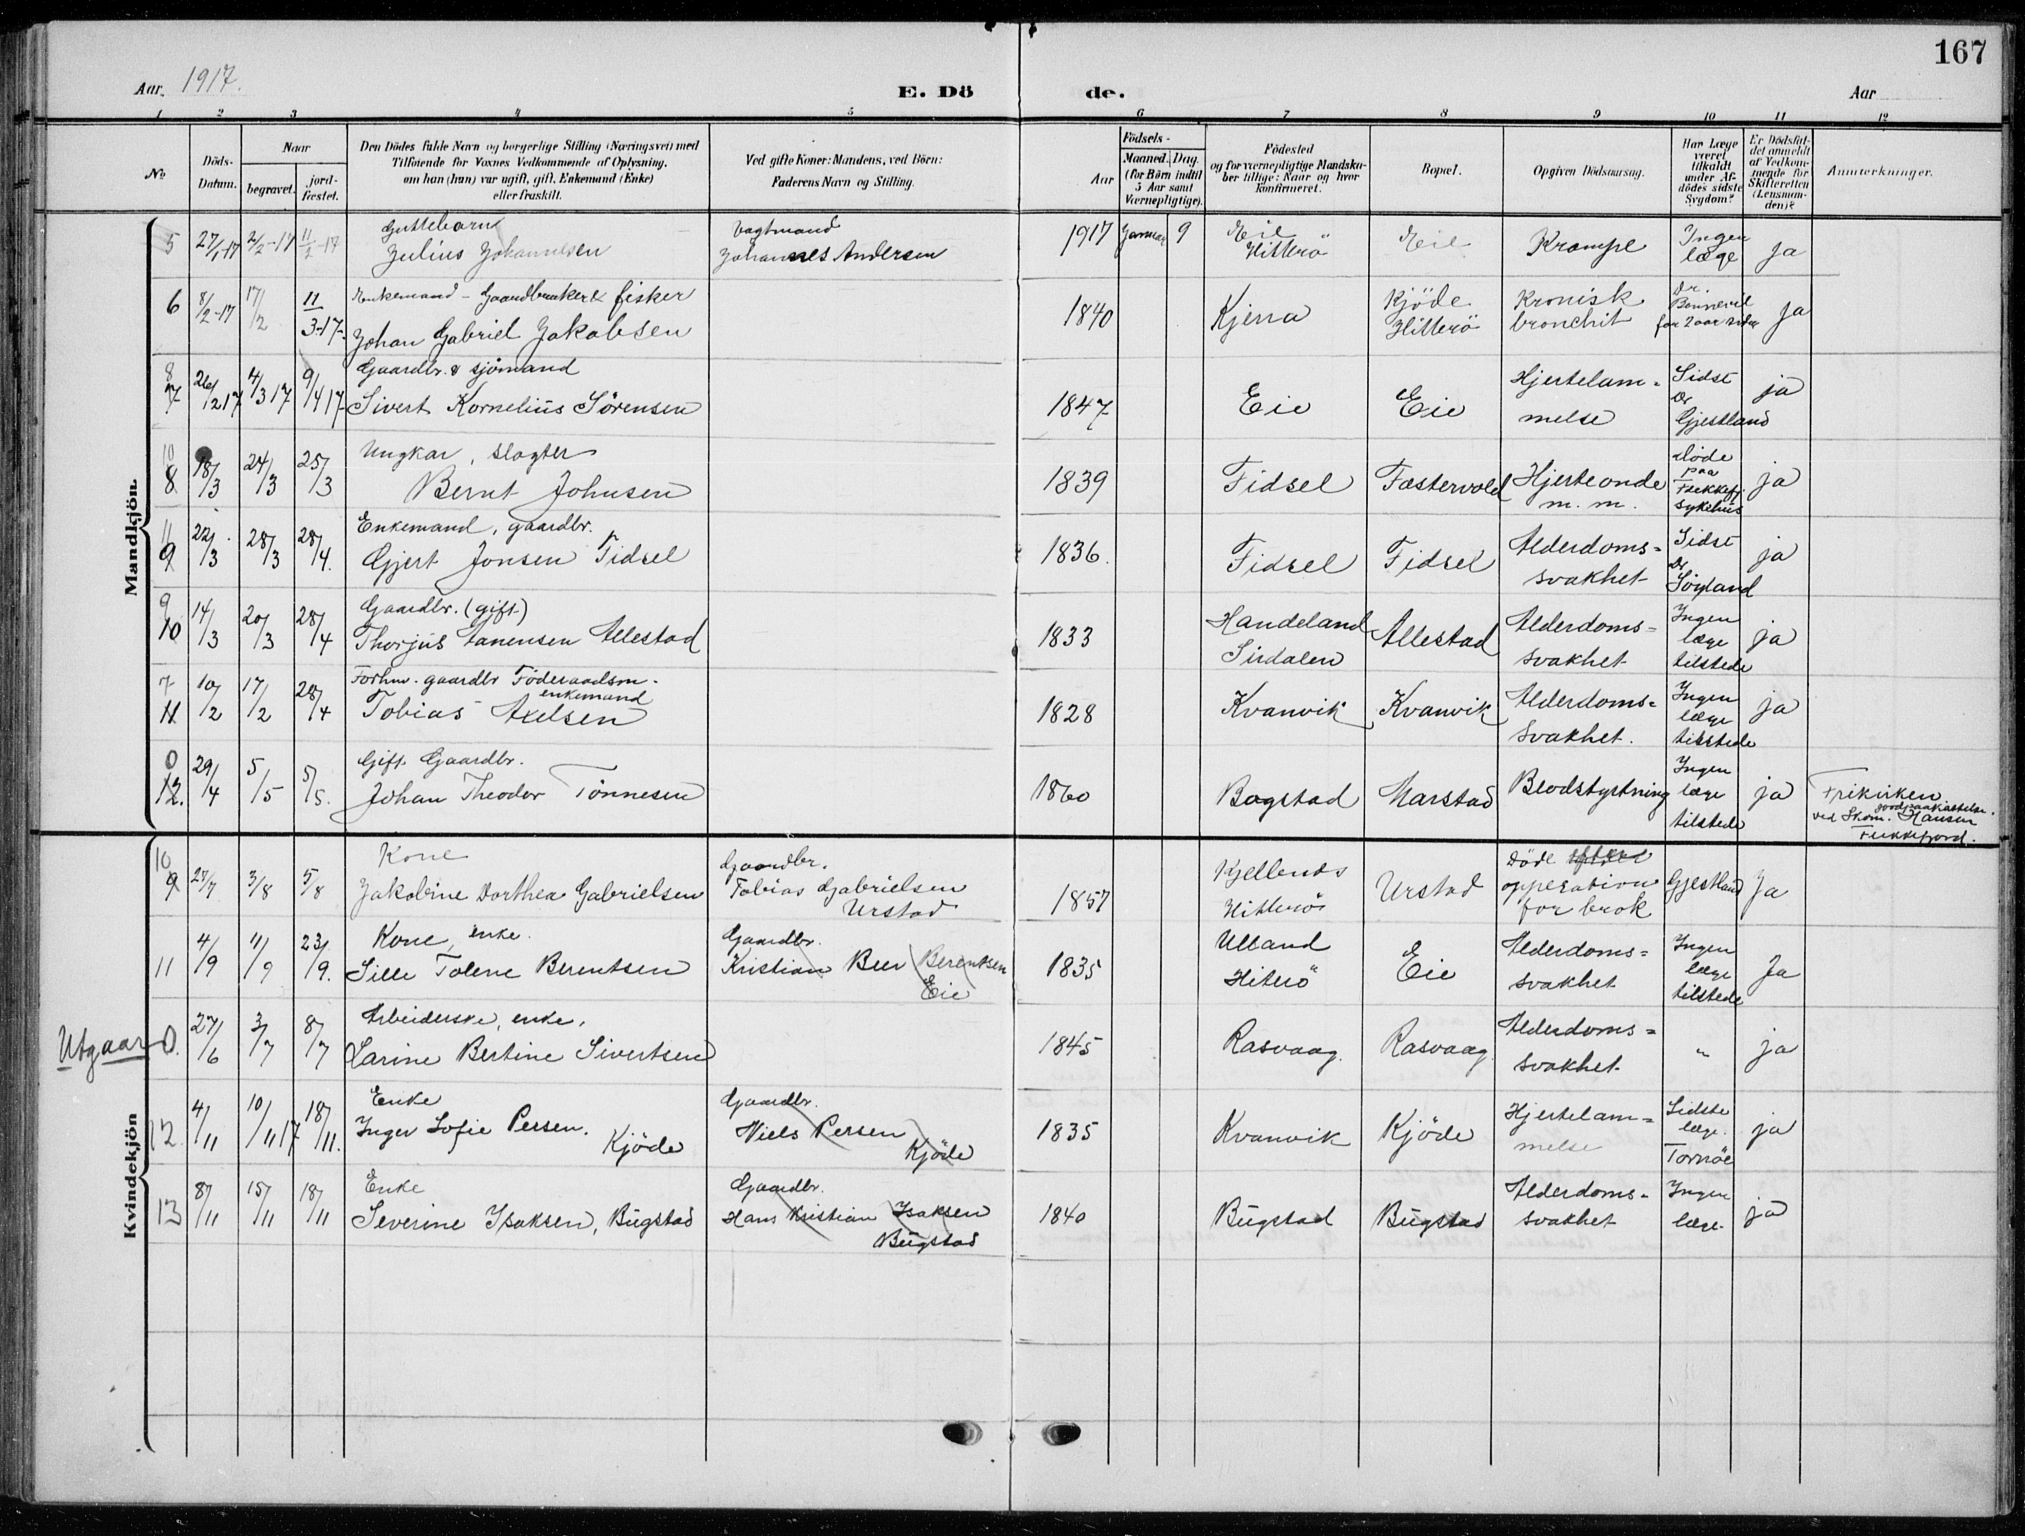 167
Aar 1917.
E. Dö de.
Aar
1 2 3 4 5 6 7 8 9 10 11 12
No.
Döds-Datum.
Naar
begravet.
jord-fæstet.
Den Dödes fulde Navn og borgerlige Stilling (Næringsvei) med
Tilföiende for Voxnes Vedkommende af Oplysning,
om han (hun) var ugift, gift, Enkemand (Enke)
eller fraskilt.
Ved gifte Koner: Mandens, ved Börn:
Faderens Navn og Stilling.
Aar
Födsels-
Maaned. Dag.
(for Börn indtil
5 Aar samt
Værnepligtige).
Födested
og for værnepligtige Mandska-
ber tillige: Naar og hvor
konfirmeret.
Bopæl.
Opgiven Dödsaarsag.
Har Læge
været
tilkaldt
under Af-
dödes sidste
Sygdom?
Er Dödsfal-
det anmeldt
af Vedkom-
mende for
Skifteretten
(Lensman-
den)?
Anmærkninger.
Mandkjön.
Guttebarn Vagtmand
5 27/1-17 2/2-17 11/2-17 Julius Johannesen Johannes Andersen 1917 Januar 9 Eie Hitterö Eie Krampe Ingen læge ja
Enkemand - Gaardbruker & fisker
6 8/2-17 17/2 11/3-17- Johan Gabriel Jakobsen 1840 Kjerra Kjöde Hitterö Kronisk bronchit Dr. Bonnevie for 2 aar siden ja
Gaardbr. & sjömand
8 7 26/2 17 4/3 17 9/4 17- Sivert Kornelius Sörensen 1847 Eie Eie Hjertelam-melse Sidst Dr Gjestland ja
Ungkar, slagter
10 8 18/3 24/3 25/3 Bernt Johnsen 1839 Fidsel Fæstervold Hjerteonde m. m. döde paa Flekkefj. sykehus ja
Enkemand, gaardbr.
11 9 22/3 28/3 28/4. Gjert Jonsen Fidsel 1836. Fidsel Fidsel Alderdoms-svakhet Sidst Dr Söyland ja
Gaardbr. (gift)
9 10 14/3 20/3 28/4 Thorjus Tanensen Allestad 1833 Handeland Sirdalen Allestad Alderdoms-svakhet Ingen læge tilstede ja
Forhv. gaardbr Föderaadsm. enkemand
7 11 10/2 17/2 28/4 Tobias Axelsen 1828 Kvanvik Kvanvik Alderdoms-svakhet. Ingen læge tilstede ja
Gift Gaardbr.
0 12. 29/4 5/5 5/5. Johan Theodor Tönnesen 1860 Bogstad Marstad Blodstyrtning Ingen læge tilstede ja Frikirken jordpaakastelse ved Skom. Hansen Flekkefjord.
Kvindekjön
Kone Gaardbr.
10 9 27/7 3/8 5/8 Jakobine Dorthea Gabrielsen Tobias Gabrielsen Urstad 1857 Kjellends Hitterö Urstad Döde efter opperation for brok Gjestland Ja
Kone, enke. Gaardbr.
11 4/9 11/9 23/9. Sille Tolene Berentsen Kristian Beer Berentsen Eie 1835 Ulland Hiterö Eie Alderdoms-svakhet Ingen læge tilstede Ja
Arbeiderske, enke.
Utgaar 0. 27/6 3/7 8/7 Larine Bertine Sivertsen 1845 Rasvaag. Rasvaag. Alderdoms-svakhet " ja
Enke Gaardbr.
12 4/11 10/11 17 18/11. Inger Sofie Persen. Kjöde Niels Persen Kjöde 1835 Kvanvik Kjöde Hjertelam-melse Sidste læge. Tornöe ja
Enke Gaardbr.
13 8/11 15/11 18/11 Severine Isaksen, Bugstad Hans Kristian Isaksen Bugstad 1840 Bugstad Bugstad Alderdoms-svakhet Ingen læge. ja